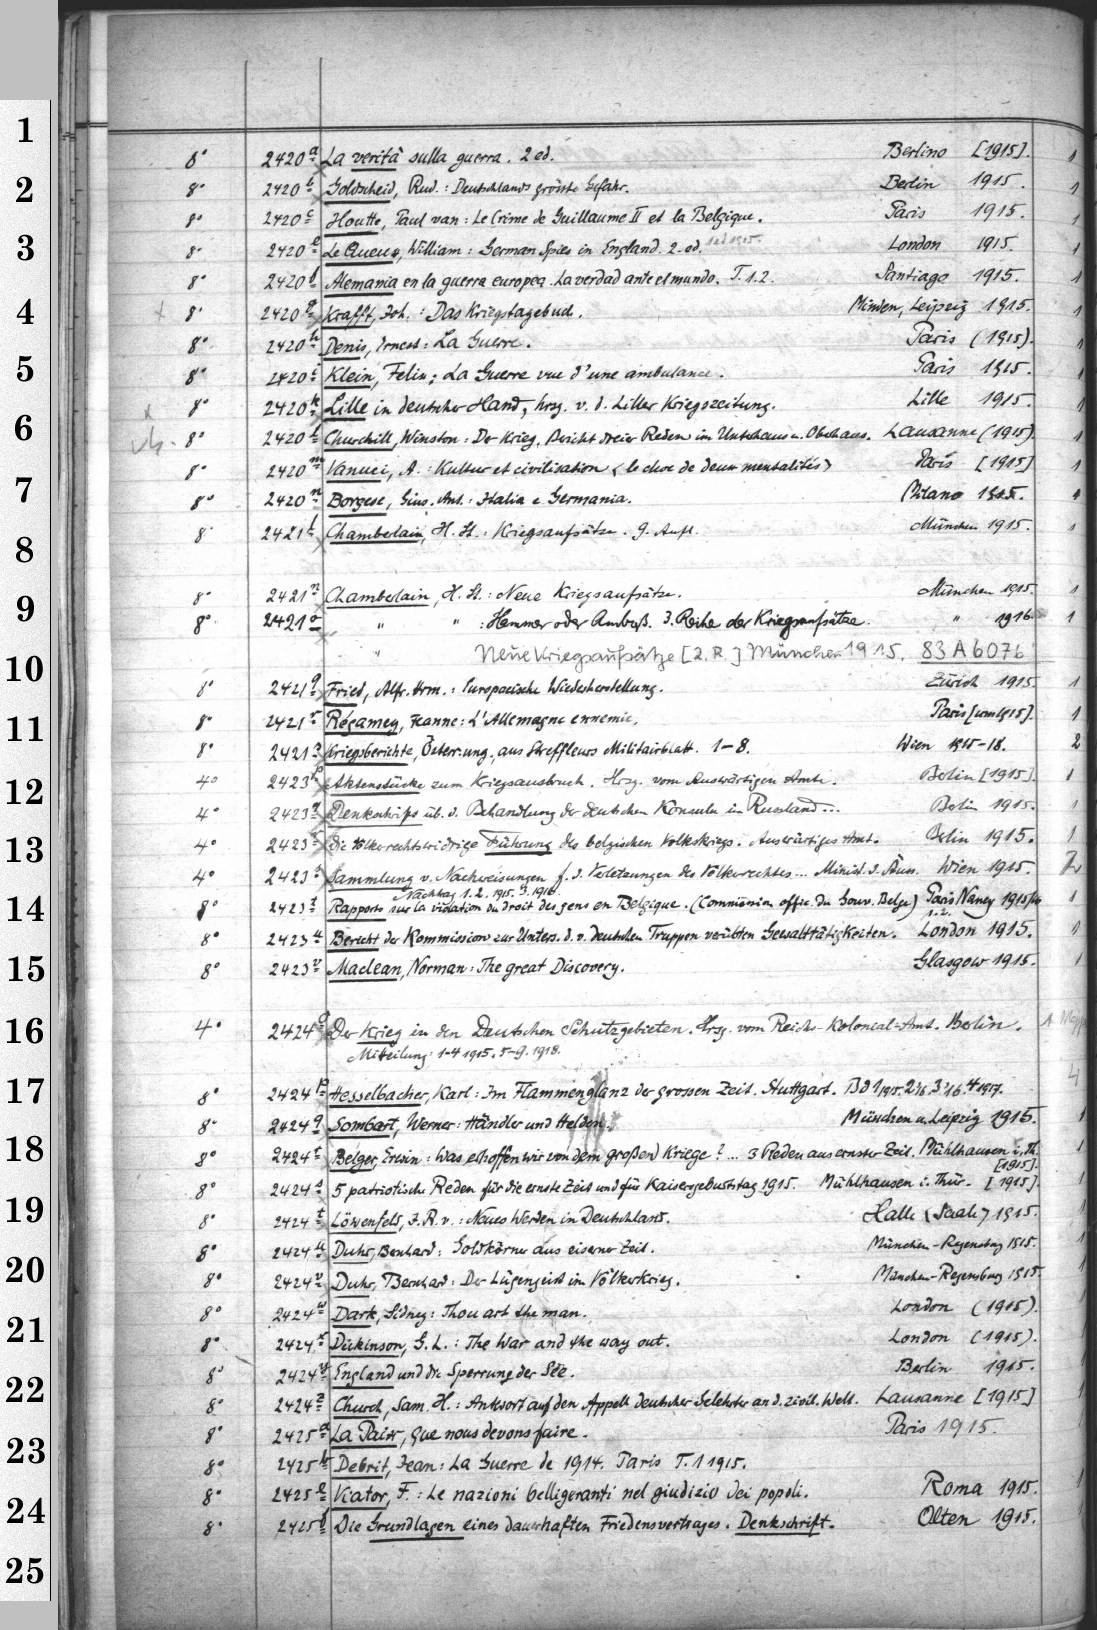 8° 2420a La verità sulla guerra. 2 ed. Berlino [1915]. 1
8° 2420b Goldscheid, Rud.: Deutschlands grösste Gefahr. Berlin 1915. 1
8° 2420c Houtte, Paul van: Le Crime de Guillaume II et la Belgique. Paris 1915. 1
8° 2420e Le Queux, William: German Spies in England. 2. ed. London 1915. 1
8° 2420f Alemania en la guerra europea. La verdad ante el mundo. T. 1.2. Santiago 1915. 1
8° 2420g Krafft, Joh.: Das Kriegstagebuch. Minden, Leipzig 1915. 1
8° 2420h Denis, Ernest: La Guerre. Paris (1915). 1
8° 2420i Klein, Felix: La Guerre vue d'une ambulance. Paris 1915. 1
8° 2420k Lille in deutscher Hand, hrsg. v. d. Liller Kriegszeitung. Lille 1915. 1
8° 2420l Churchill, Winston: Der Krieg. Bericht dreier Reden im Unterhaus u. Oberhaus. Lausanne (1915). 1
8° 2420m Vanuci, A.: Kultur et civilisation (le choc de deux mentalités) Paris [1915] 1
8° 2420n Borgese, Gius. Ant.: Italia e Germania. Milano 1915.
8° 2421l Chamberlain, H. St.: Kriegsaufsätze. 9. Aufl. München 1915. 1
8° 2421n Chamberlain, H. St.: Neue Kriegsaufsätze. München 1915. 1
8° 2421o " " : Hammer oder Amboß. 3. Reihe der Kriegsaufsätze. " 1916. 1
" Neue Kriegsaufsätze [2. R.] München 1915. 83 A 6076
8° 2421q Fried, Alfr. Hrm.: Europaeische Wiederherstellung. Zürich 1915 1
8° 2421r Régamey, Jeanne: L'Allemagne ennemie. Paris [um 1915]. 1
8° 2421s Kriegsberichte, Österr.-ung., aus Streffleurs Militärblatt. 1-8. Wien 1915-18. 2
4° 2423p Aktenstücke zum Kriegsausbruch. Hrsg. vom Auswärtigen Amte. Berlin [1915]. 1
4° 2423q Denkschrift üb. d. Behandlung der deutschen Konsuln in Russland... Berlin 1915. 1
4° 2423r Die völkerrechtswidrige Führung des belgischen Volkskriegs. Auswärtiges Amt. Berlin 1915. 1
4° 2423s Sammlung v. Nachweisungen f. d. Verletzungen des Völkerrechtes... Minist. d. Äuss. Wien 1915.
Nachtrag 1.2. 1915. 3. 1916.
8° 2423t Rapports sur la violation du droit des gens en Belgique. (Commission offic. du Gouv. Belge) Paris Nancy 1915/16 1
8° 2423u Bericht der Kommission zur Unters. d. v. deutschen Truppen verübten Gewalttätigkeiten. London 1915. 1
8° 2423v Maclean, Norman: The great Discovery. Glasgow 1915. 1
4° 2424a Der Krieg in den Deutschen Schutzgebieten. Hrsg. vom Reichs-Kolonial-Amt. Berlin.
Mitteilung: 1-4 1915. 5-9. 1918.
8° 2424p Hesselbacher, Karl: Im Flammenglanz der grossen Zeit. Stuttgart. Bd 1 1915. 2 '16. 3 '16. 4 1917. 4
8° 2424q Sombart, Werner: Händler und Helden. München u. Leipzig 1915. 1
8° 2424r Belger, Erwin: Was erhoffen wir von dem großen Kriege? ... 3 Reden aus ernster Zeit. Mühlhausen i. Th. [1915]. 1
8° 2424s 5 patriotische Reden für die ernste Zeit und für Kaisersgeburtstag 1915. Mühlhausen i. Thür. [1915]. 1
8° 2424t Löwenfeld, J. R. v.: Neues Werden in Deutschland. Halle (Saale) 1915. 1
8° 2424u Duhr, Bernhard: Goldkörner aus eiserner Zeit. München-Regensburg 1915. 1
8° 2424v Duhr, Bernhard: Der Lügengeist im Völkerkrieg. München-Regensburg 1915. 1
8° 2424w Dark, Sidney: Thou art the man. London (1915).
8° 2424x Dickinson, G. L.: The War and the way out. London (1915).
8° 2424y England und die Sperrung der See. Berlin 1915.
8° 2424z Church, Sam. H.: Antwort auf den Appell deutscher Gelehrter an d. zivil. Welt. Lausanne [1915]
8° 2425a La Paix, que nous devons faire. Paris 1915.
8° 2425b Debrit, Jean: La Guerre de 1914. Paris T. 1 1915.
8° 2425e Viator, F.: Le nazioni belligeranti nel giudizio dei popoli. Roma 1915.
8° 2425f Die Grundlagen eines dauerhaften Friedensvertrages. Denkschrift. Olten 1915.
1
2
3
4
5
6
7
8
9
10
11
12
13
14
15
16
17
18
19
20
21
22
23
24
25